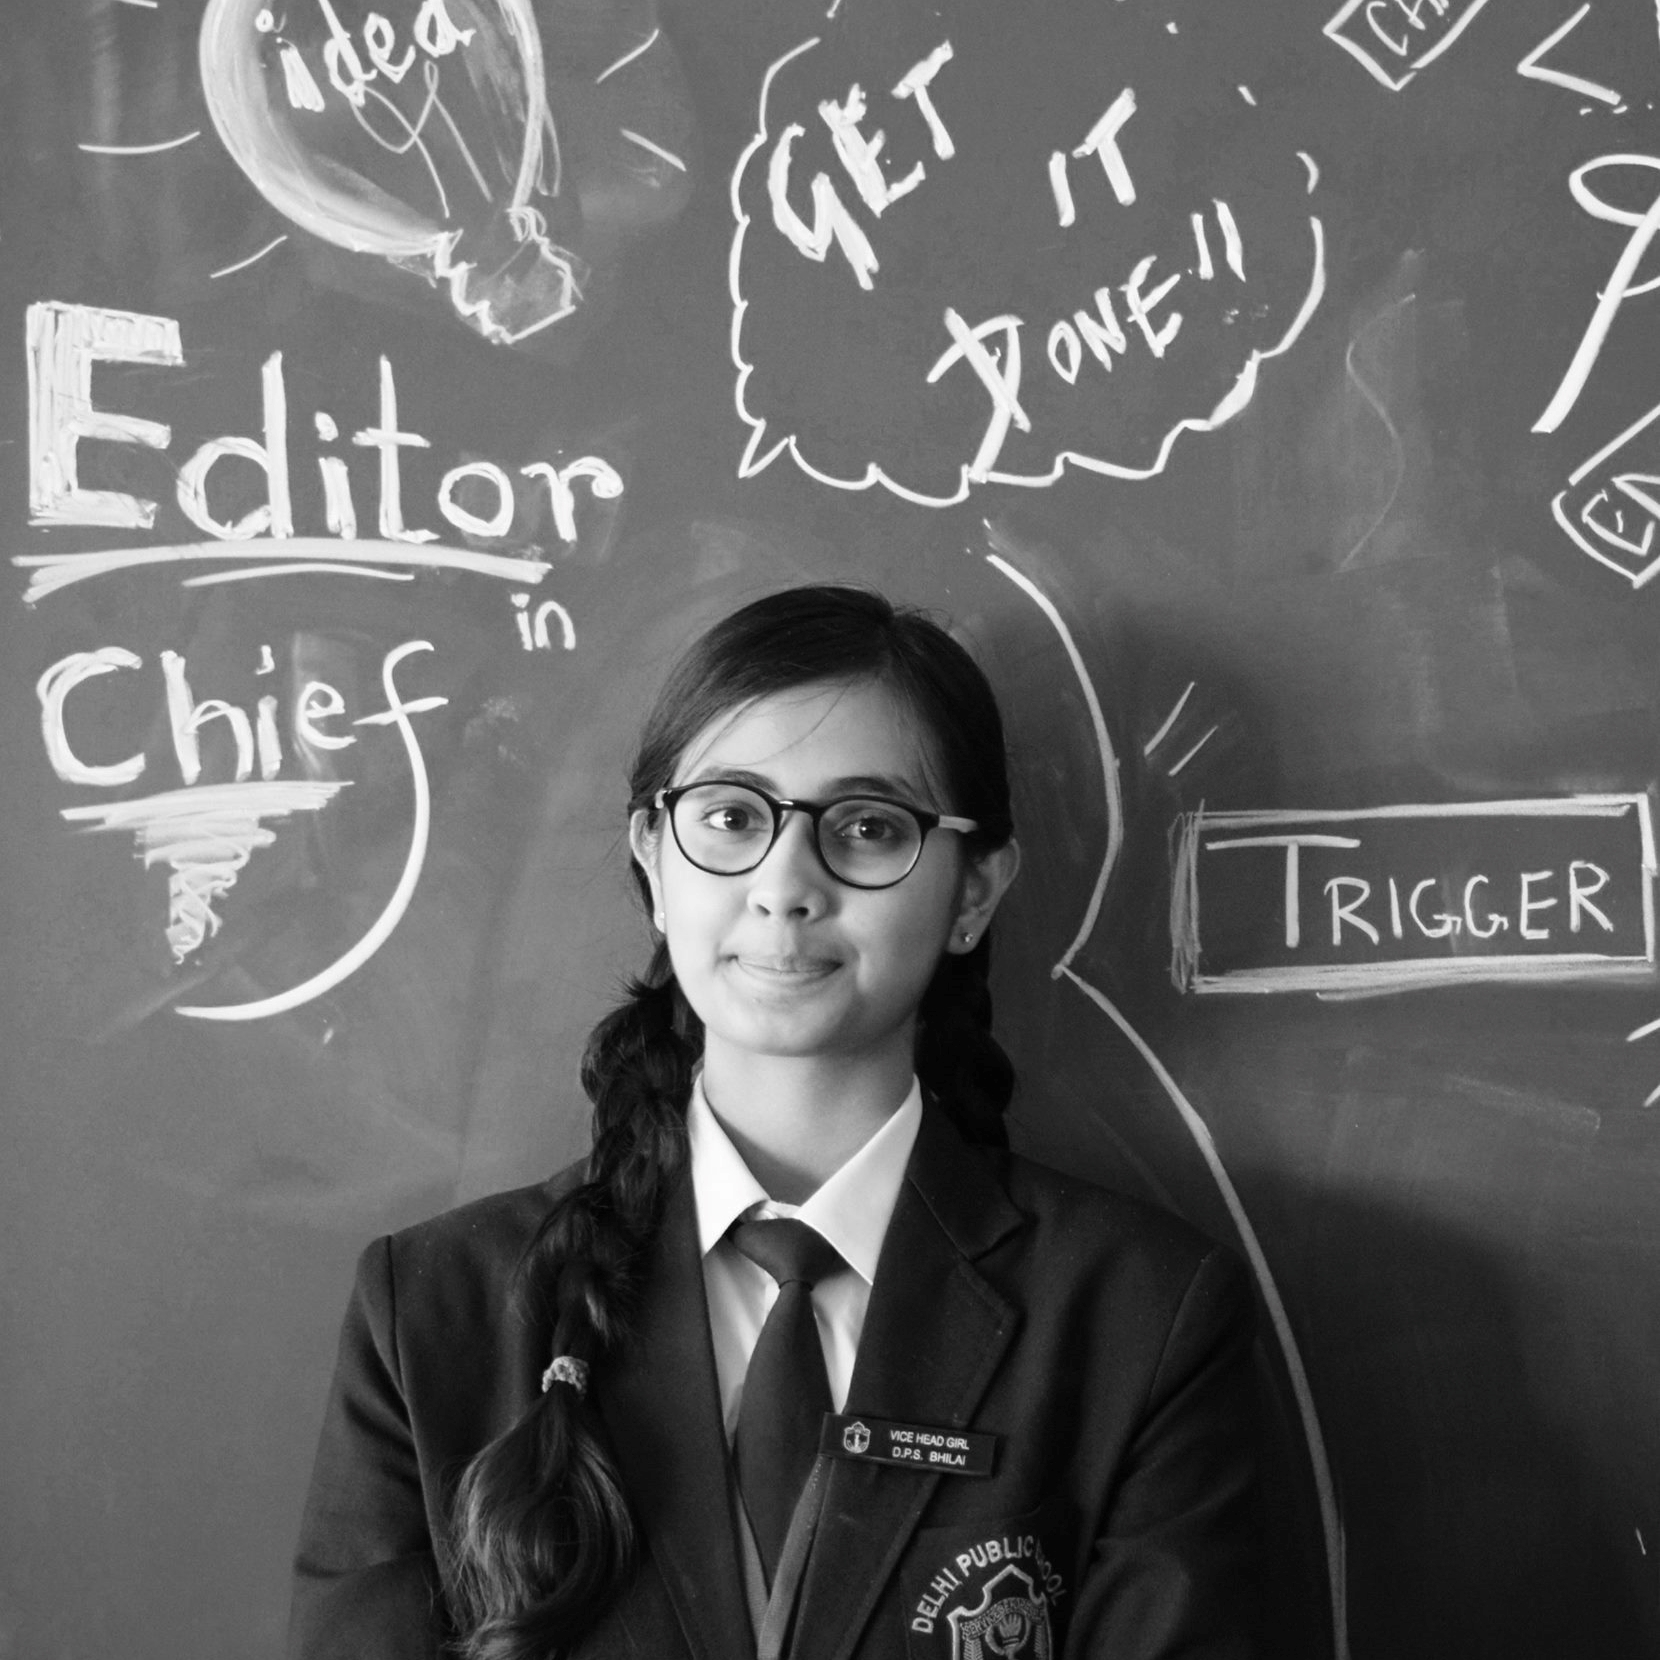 idea
GET
IT
DONE!!
Editor
in
Chief
TRIGGER
VICE HEAD GIRL
D.P.S. BHILAI
DELHI PUBLIC